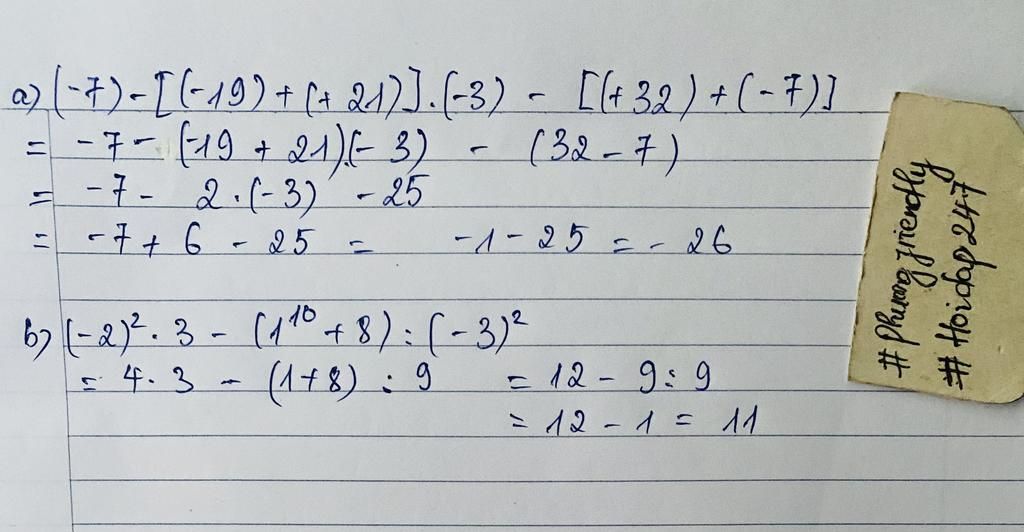 a) (-7) - [(-19) + (+ 21)] . (-3) - [(+ 32) + (-7)]
= -7 - (-19 + 21).(- 3) - (32 - 7)
= -7 - 2 . (-3) - 25
= -7 + 6 - 25 = -1 - 25 = - 26
b) (-2)² . 3 - (1¹⁰ + 8) : (-3)²
= 4 . 3 - (1+8) : 9 = 12 - 9 : 9
= 12 - 1 = 11
#phuongfriendly
#Hoidap247